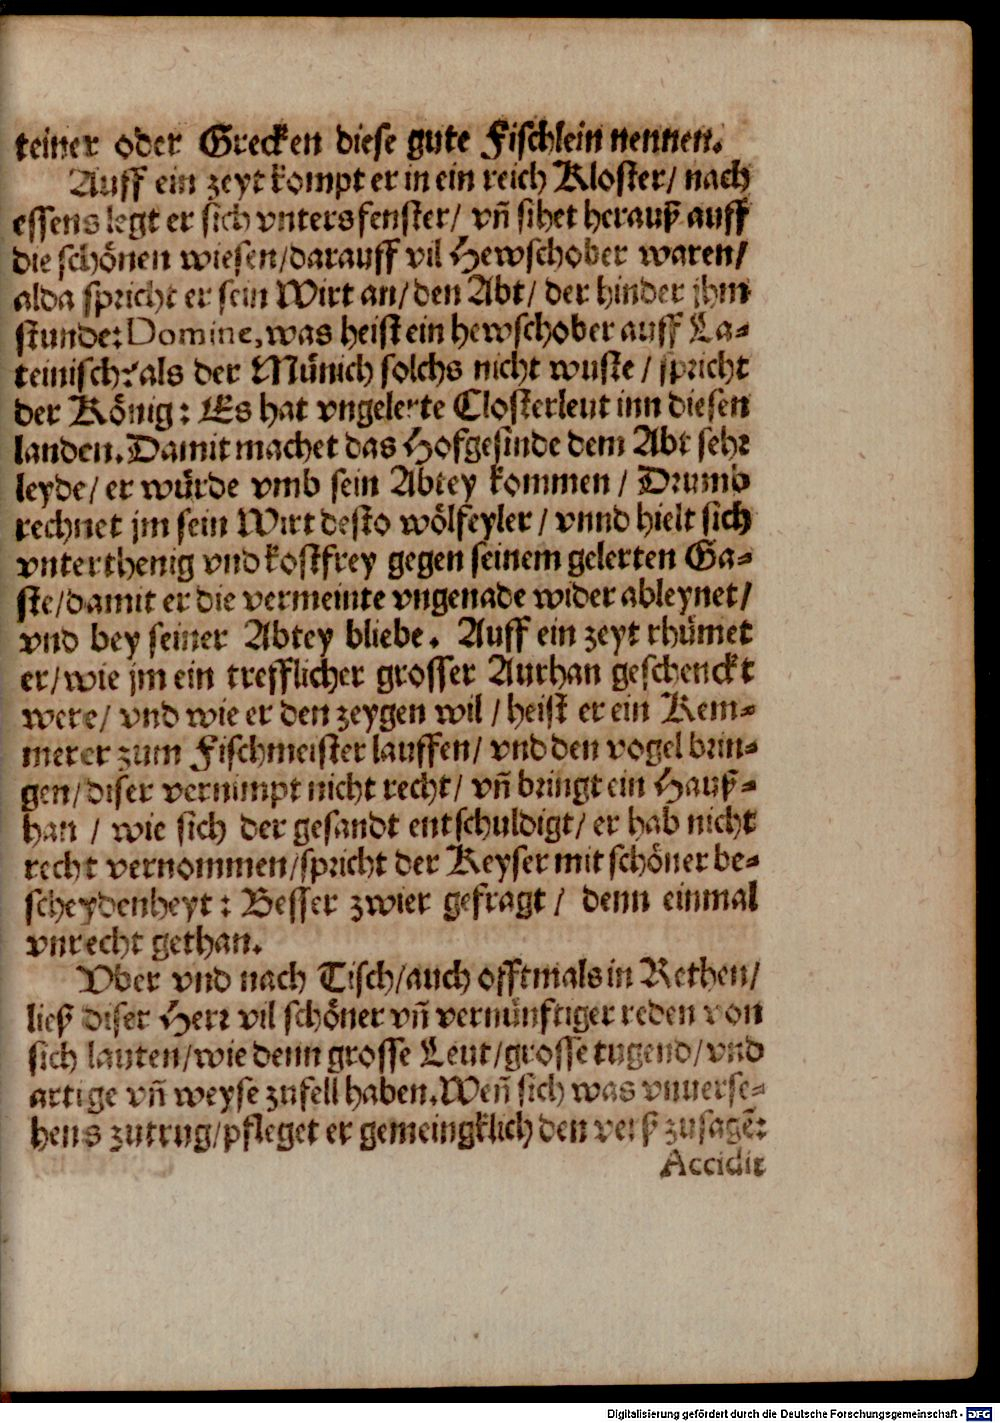 teiner oder Grecken diese gute Fischlein nennen.
Auff ein zeyt kompt er in ein reich Kloster/ nach
essens legt er sich vnters fenster/ vñ sihet herauß auff
die schönen wiesen/darauff vil Hewschober waren/
alda spricht er sein Wirt an/ den Abt/ der hinder jhm
stunde: Domine, was heist ein hewschober auff La-
teinisch? als der Münich solchs nicht wuste / spricht
der König: Es hat vngelerte Closterleut inn diesen
landen. Damit machet das Hofgesinde dem Abt sehr
leyde/ er würde vmb sein Abtey kommen / Drumb
rechnet jm sein Wirt desto wölfeyler / vnnd hielt sich
vnterthenig vnd kostfrey gegen seinem gelerten Ga-
ste/damit er die vermeinte vngenade wider ableynet/
vnd bey seiner Abtey bliebe. Auff ein zeyt rhümet
er/wie jm ein trefflicher grosser Aurhan geschenckt
were/ vnd wie er den zeygen wil / heist er ein Kem-
merer zum Fischmeister lauffen/ vnd den vogel brin-
gen/diser vernimpt nicht recht/ vñ bringt ein Hauß-
han / wie sich der gesandt entschuldigt/ er hab nicht
recht vernommen/spricht der Keyser mit schöner be-
scheydenheyt: Besser zwier gefragt / denn einmal
vnrecht gethan.
Vber vnd nach Tisch/auch offtmals in Rethen/
ließ diser Herr vil schöner vñ vernünftiger reden von
sich lauten/wie denn grosse Leut/grosse tugend/vnd
artige vñ weyse zufell haben. Weñ sich was vnuerse-
hens zutrug/pfleget er gemeingklich den verß zusagẽ:
Accidit
Digitalisierung gefördert durch die Deutsche Forschungsgemeinschaft - DFG